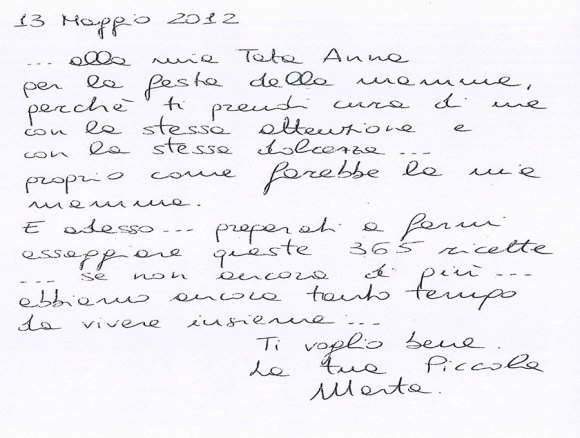 13 Maggio 2012
... alla mia Tata Anna
per la festa della mamma,
perchè ti prendi cura di me
con la stessa attenzione e
con la stessa dolcezza ...
proprio come farebbe la mia
mamma.
E adesso ... preparati a farmi
assaggiare queste 365 ricette
... se non ancora di più ...
abbiamo ancora tanto tempo
da vivere insieme ...
Ti voglio bene.
La tua Piccola
Marta.